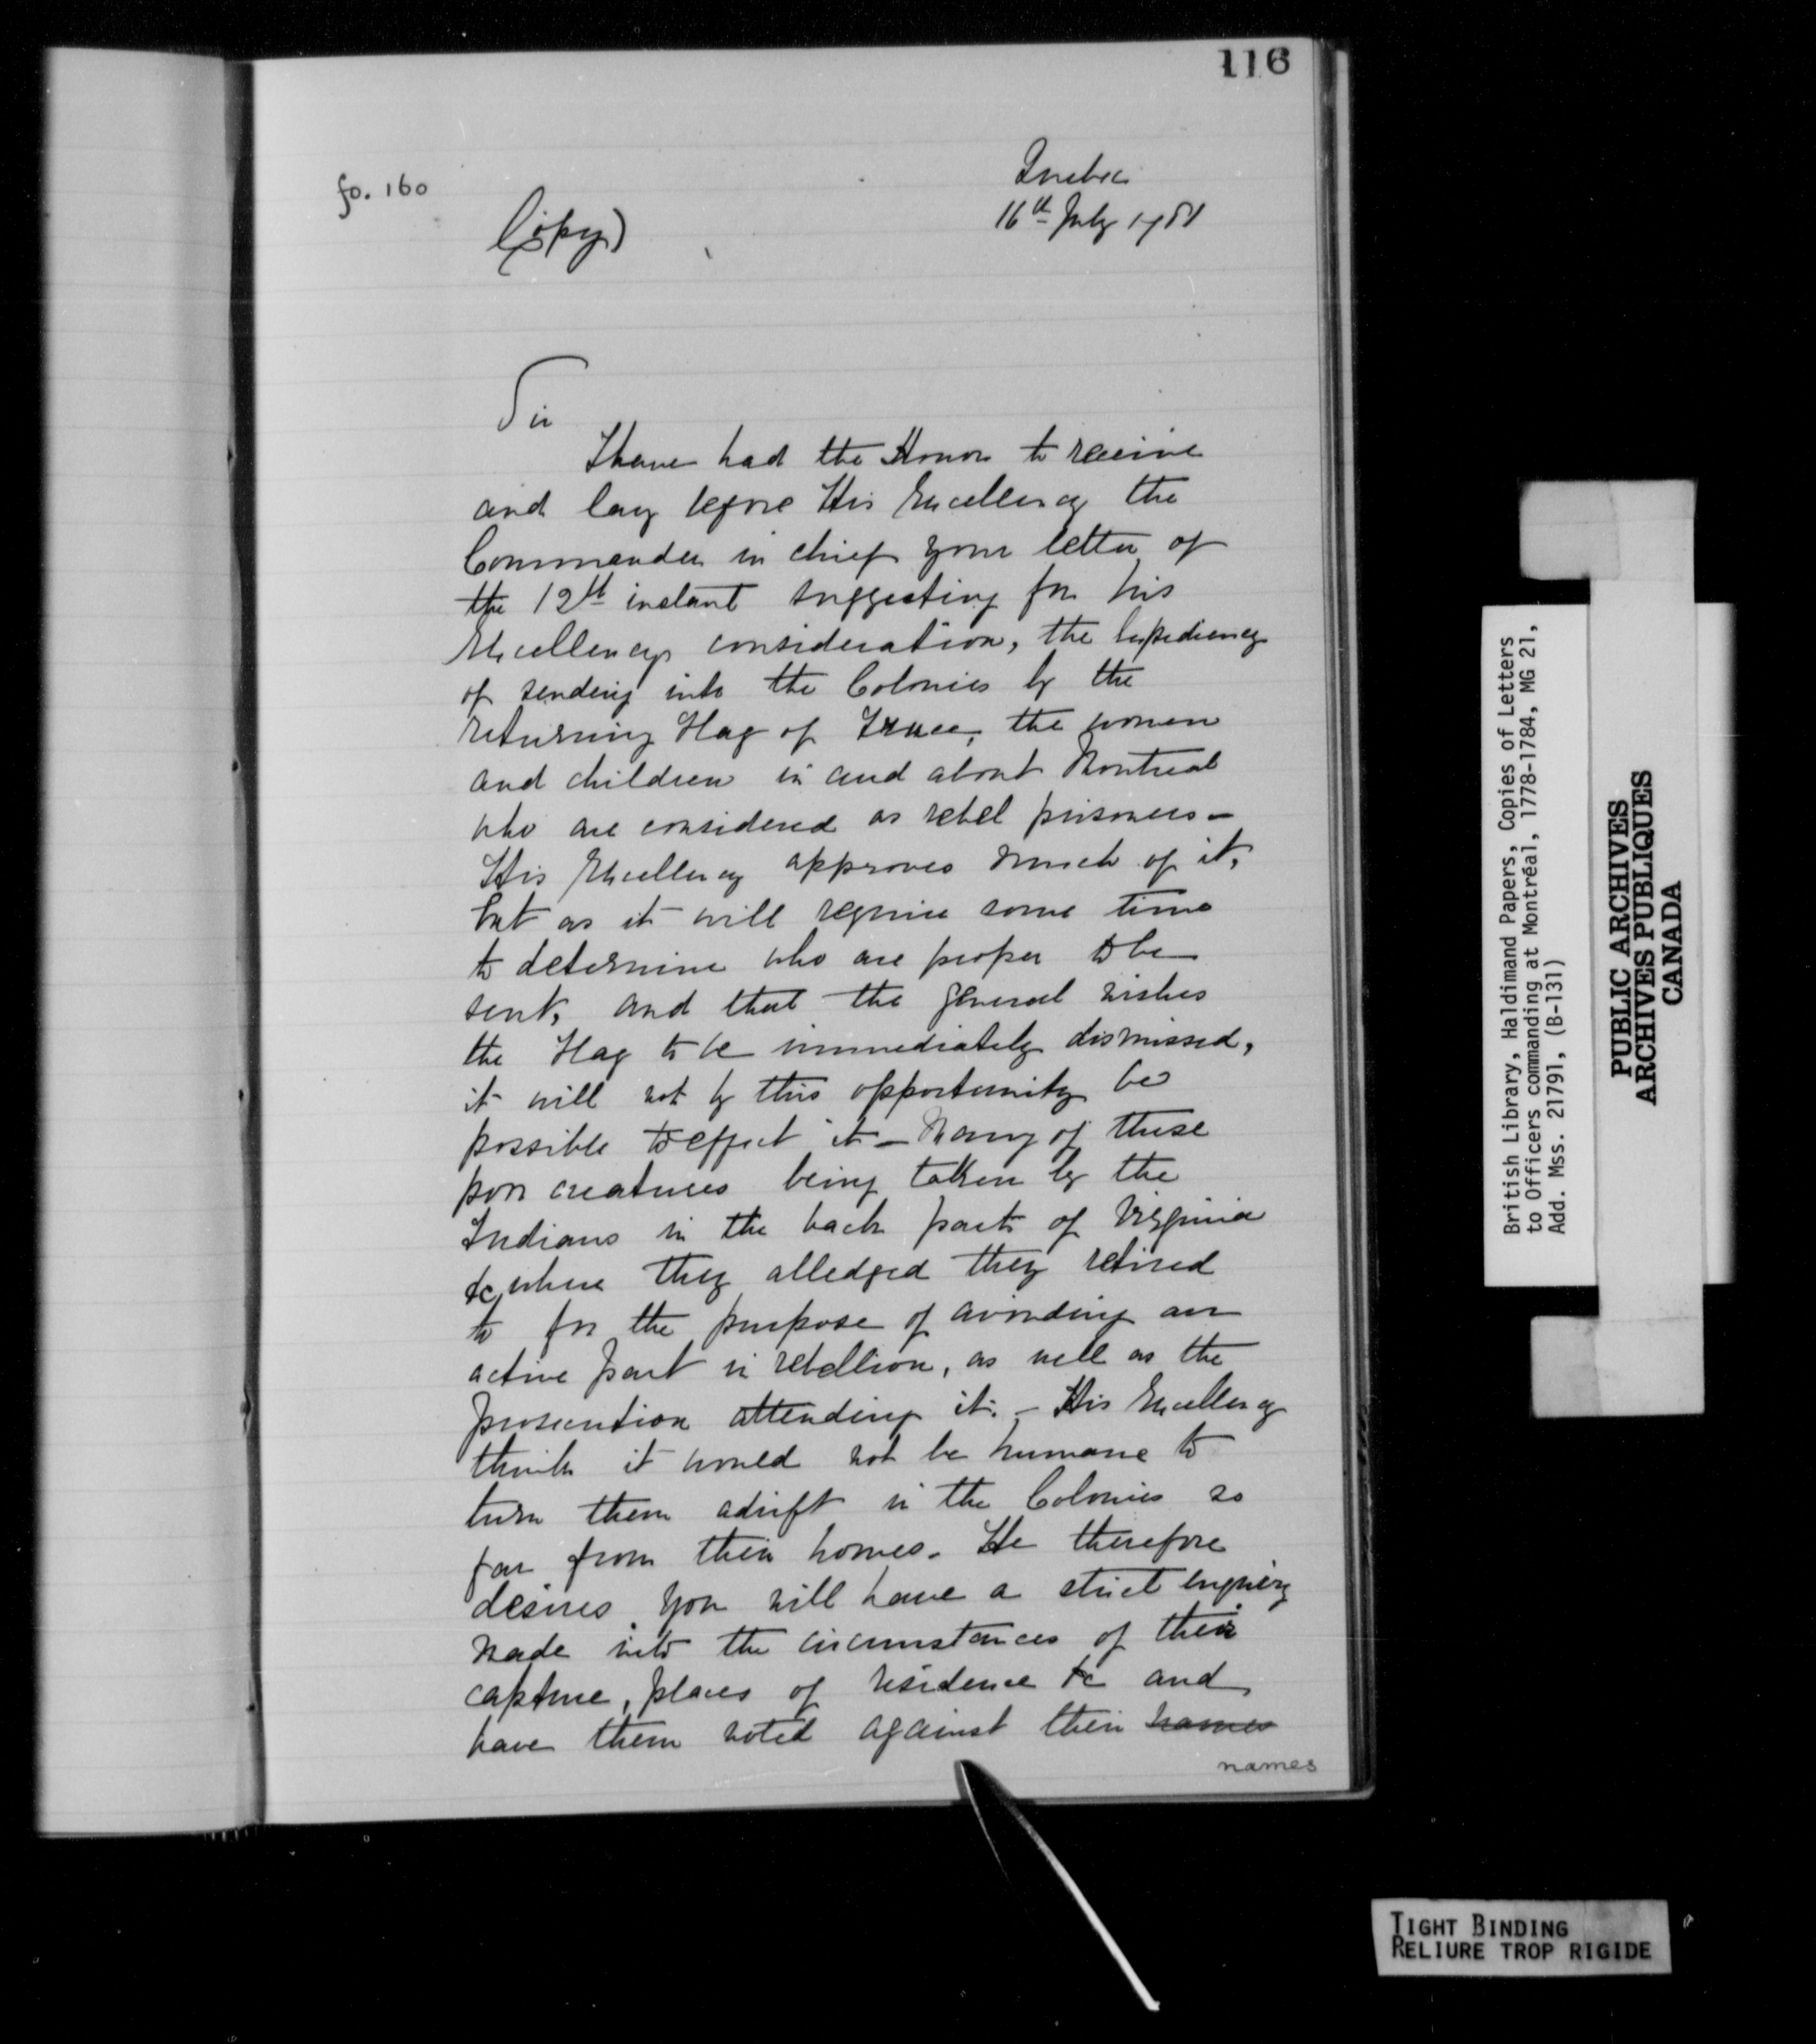 116
fo. 160
Quebec
16th July 1781
(Copy)
Sir
I have had the Honor to receive
and lay before His Excellency the
Commander in chief your letter of
the 12th instant suggesting for his
Excellencys consideration, the Expediency
of sending into the Colonies by the
returning Flag of Truce, the women
and children in and about Montreal
who are considered as rebel prisoners –
His Excellency approves much of it,
but as it will require some time
to determine who are proper to be
sent, and that the General wishes
the Flag to be immediately dismissed,
it will not by this opportunity be
possible to effect it – Many of these
poor creatures being taken by the
Indians in the back parts of Virginia
&c, where they alledged they retired
to for the purpose of avoiding an
active part in rebellion, as well as the
prosecution attending it. – His Excellency
thinks it would not be humane to
turn them adrift in the Colonies so
far from their homes. He therefore
desires you will have a strict enquiry
made into the circumstances of their
capture, places of residence &c and
have them noted against their names
names
British Library, Haldimand Papers, Copies of Letters
to Officers commanding at Montréal, 1778-1784, MG 21,
Add. Mss. 21791, (B-131)
PUBLIC ARCHIVES
ARCHIVES PUBLIQUES
CANADA
TIGHT BINDING
RELIURE TROP RIGIDE